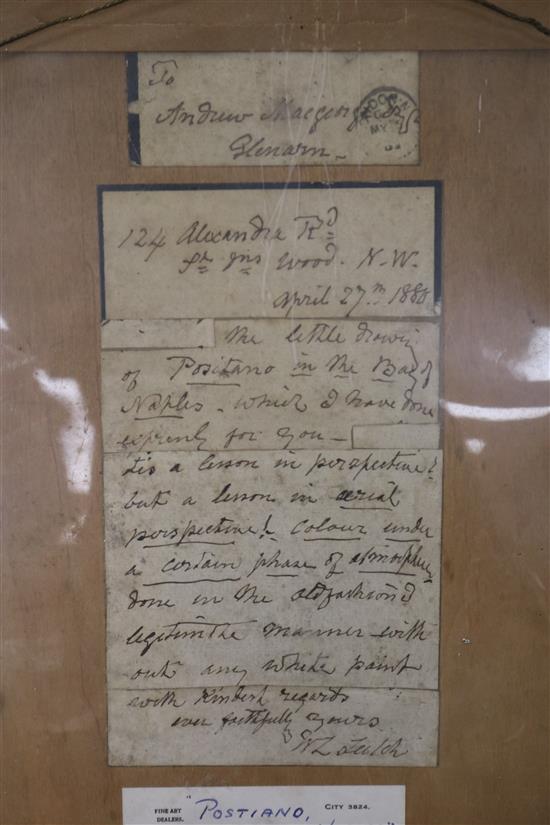 To
Andrew Macgeorge
Glenarn
LONDON N
MY
124 Alexandra Rd
St Jns Wood. N.W.
April 27th 1880
the little drawing
of Positano in the Bay of
Naples. which I have done
expressly for you—
tis a lesson in perspective!
but a lesson in aerial
perspective! Colour under
a certain phase of atmosphere
done in the oldfashion'd
legitimate manner with
out any white paint
with kindest regards
ever faithfully yours
W L Leitch
FINE ART
DEALERS.
"POSTIANO,
CITY 3824.